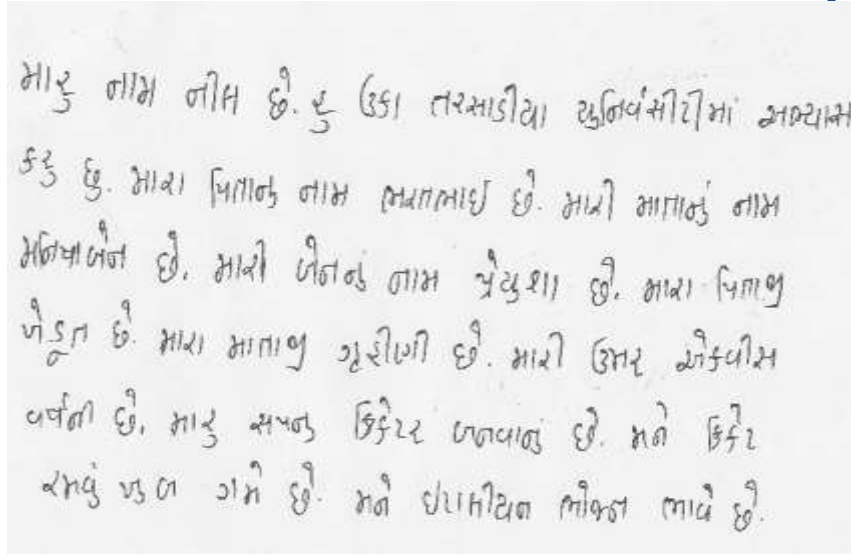 મારુ નામ નીલ છે. હુ ઉકા તરસાડીયા યુનિવર્સીટીમાં અભ્યાસ
કરુ છુ. મારા પિતાનુ નામ ભરતભાઇ છે. મારી માતાનું નામ
મનિષાબેન છે. મારી બેનનું નામ પ્રેયુશા છે. મારા પિતાજી
ખેડૂત છે. મારા માતાજી ગૃહીણી છે. મારી ઉમર એકવીસ
વર્ષની છે. મારુ સપનુ ક્રિકેટર બનવાનું છે. મને ક્રિકેટ
રમવું ખુબ ગમે છે. મને ઇટાલીયન ભોજન ભાવે છે.